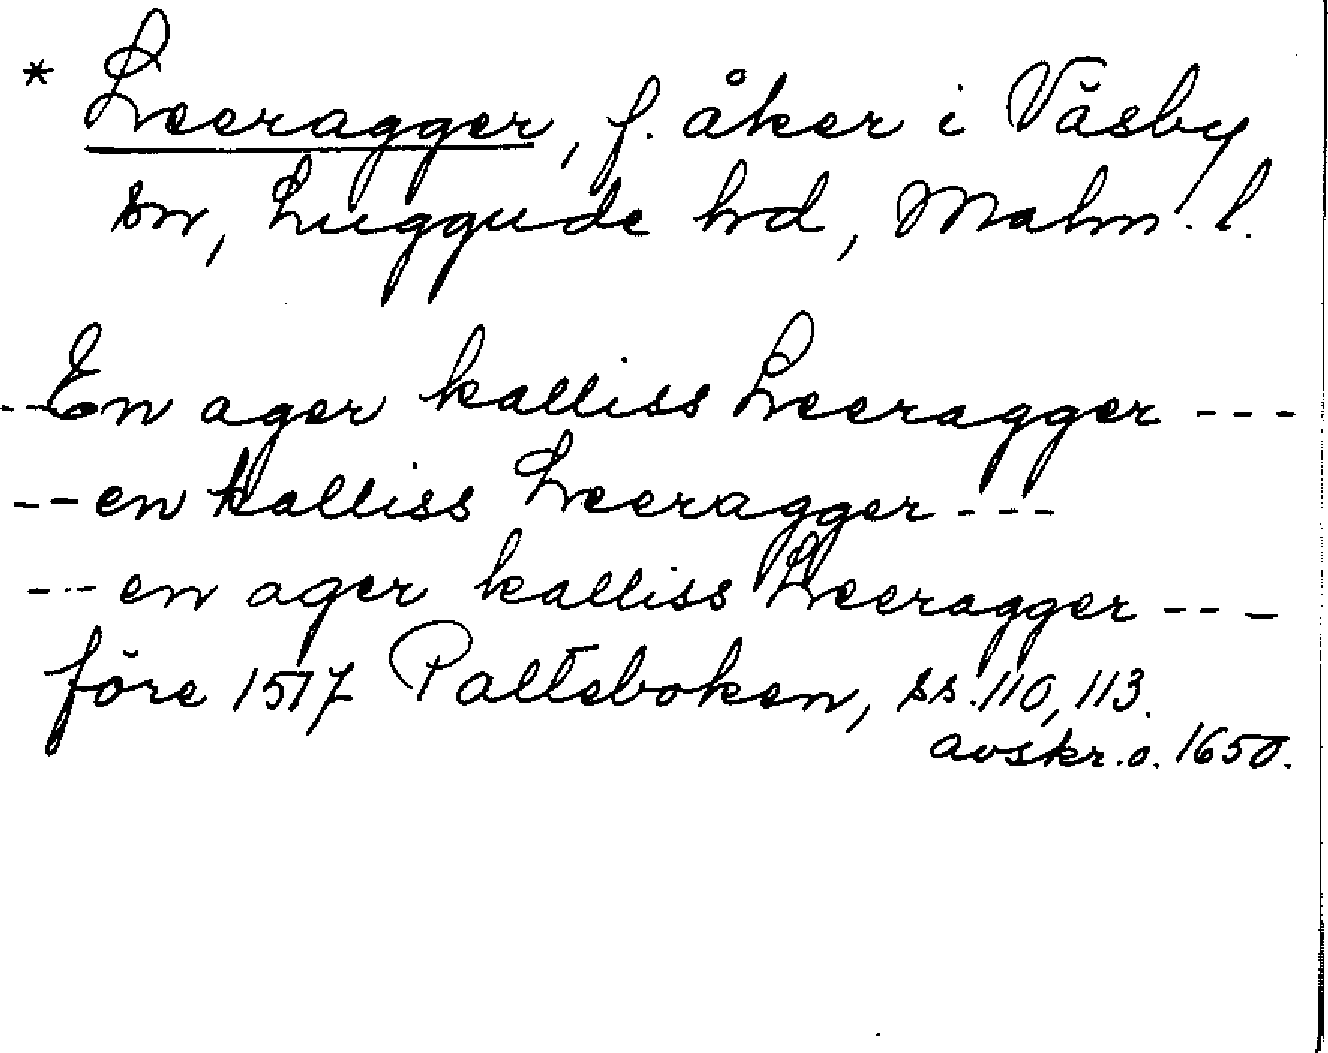 * Leeragger, f. åker i Väsby
sn, Luggude hd, Malm. l.
--En ager kalliss Leeragger ---
--en kalliss Leeragger ---
--- en ager kalliss Leeragger ---
före 1517 Palteboken, ss. 110, 113.
avskr. o. 1650.